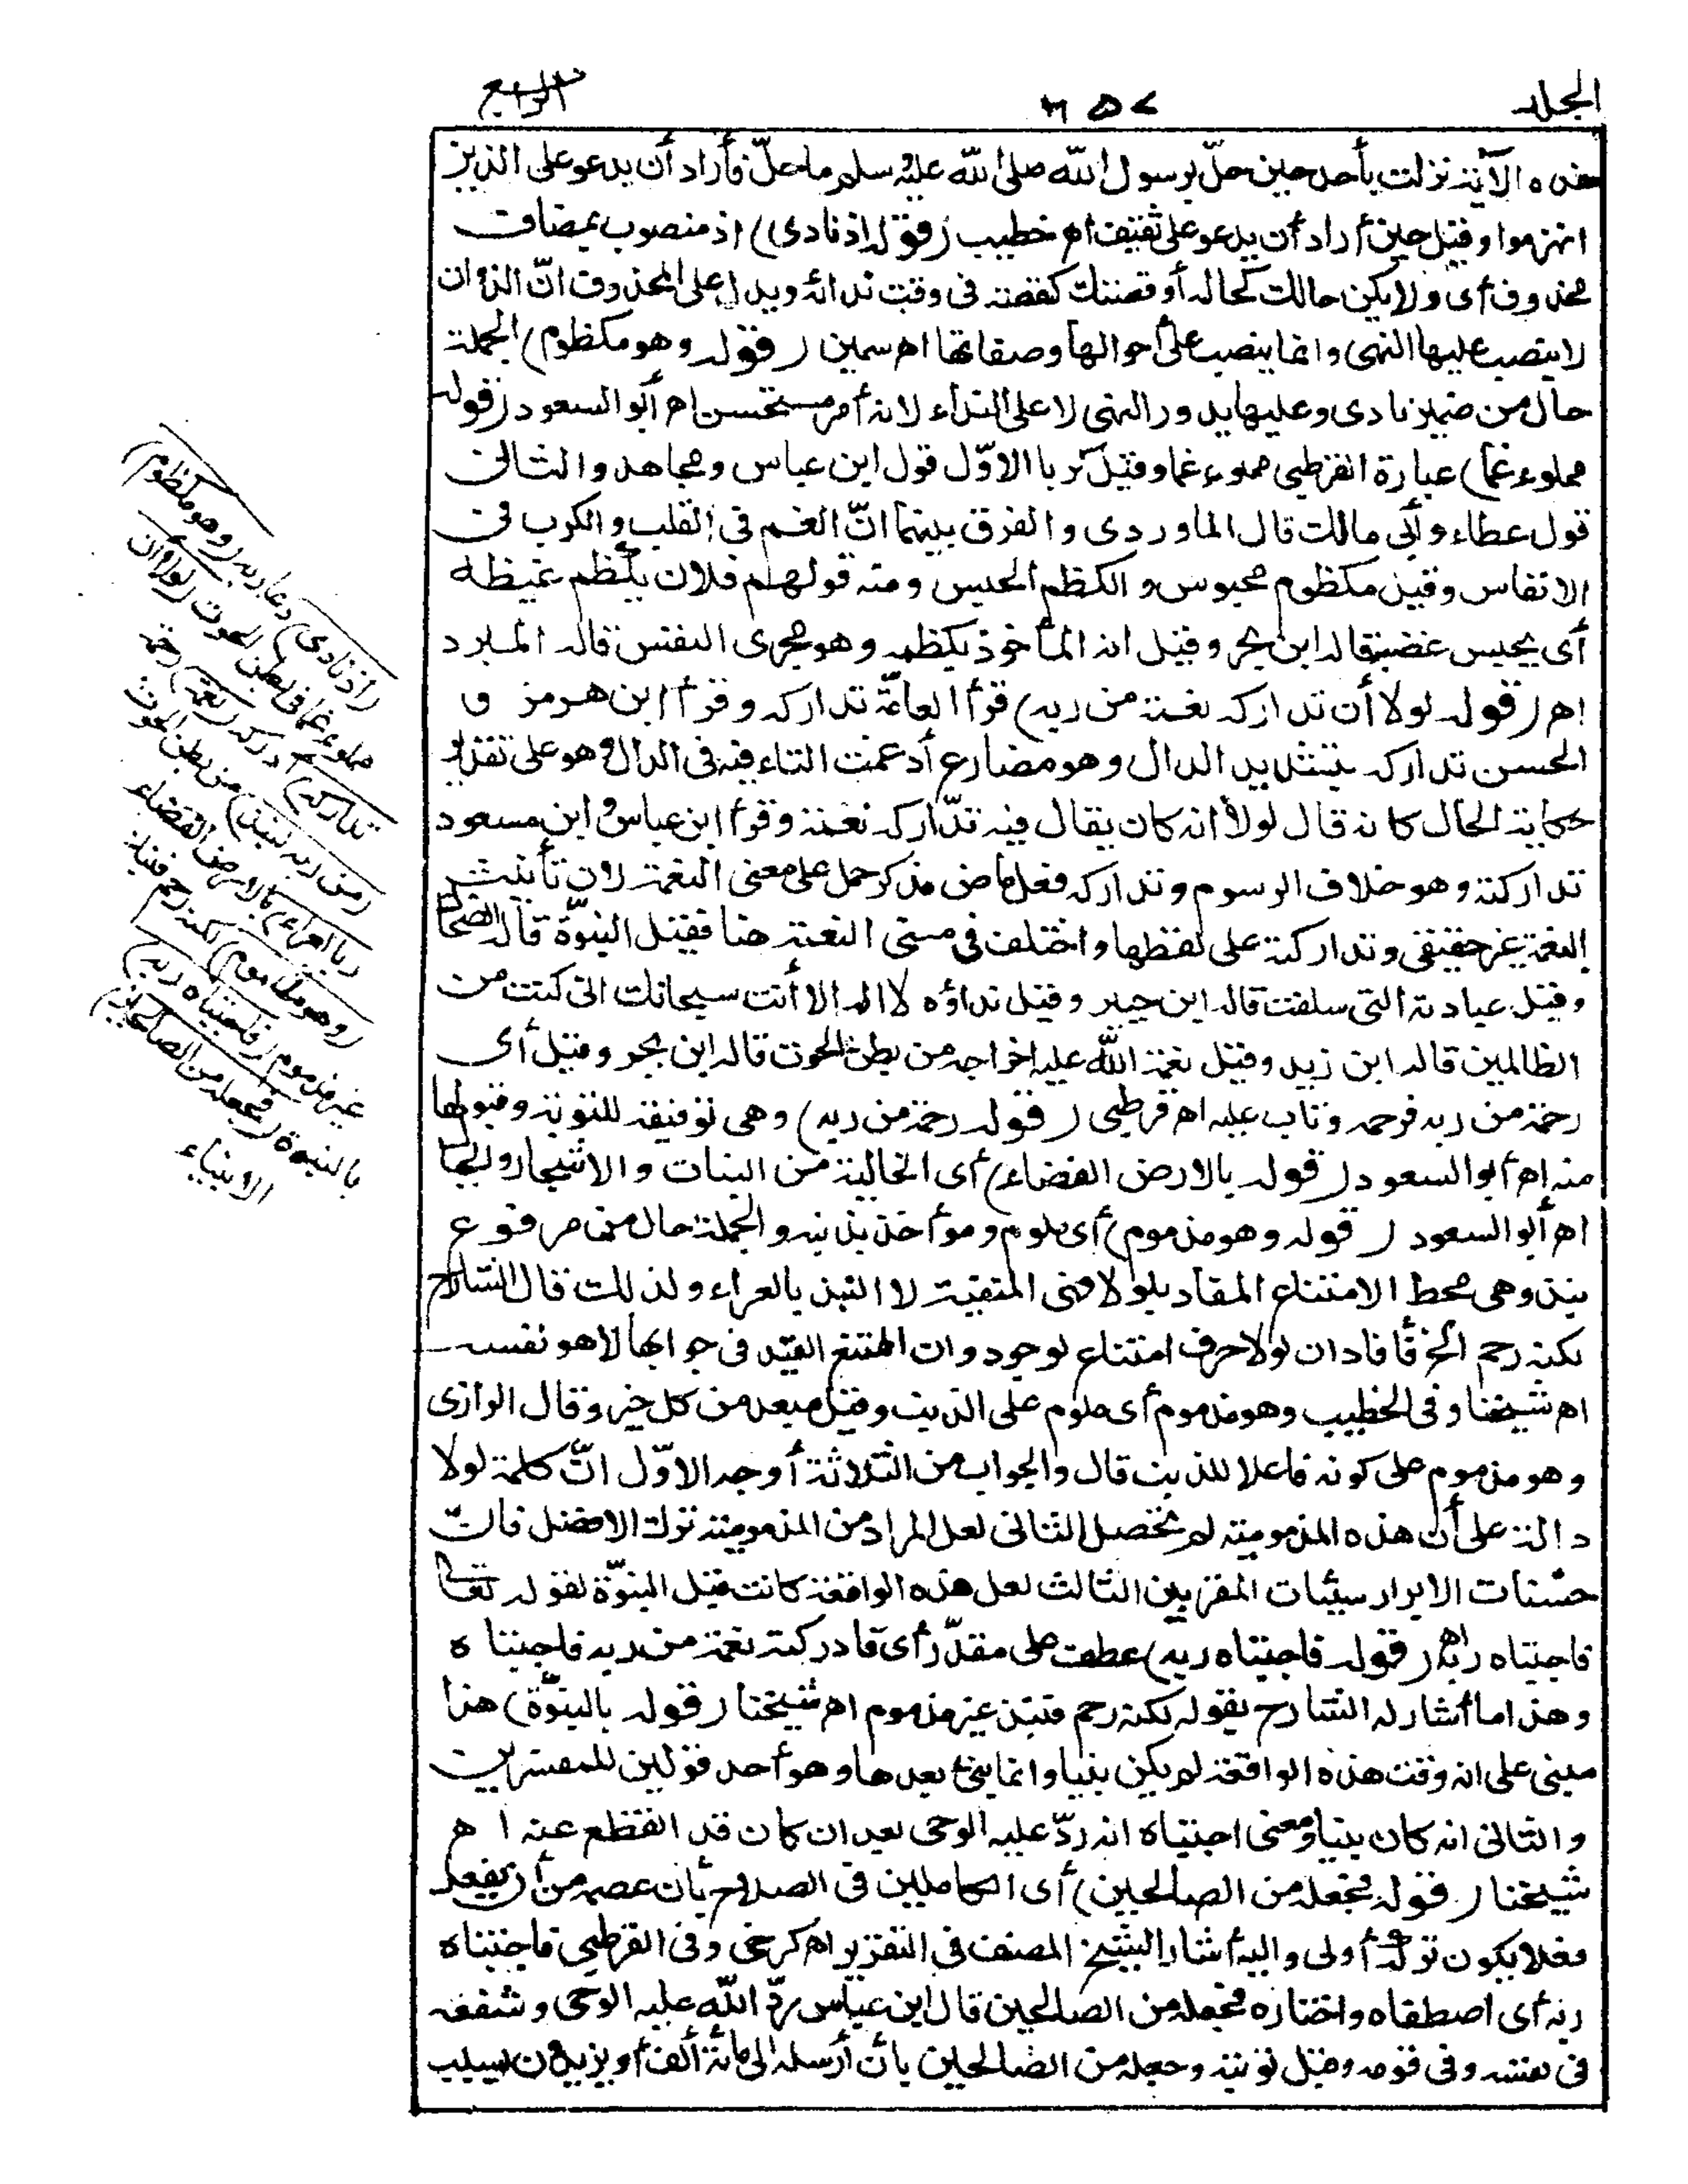 الجلد
٣٥٧
الرابع
هذه الآية نزلت بأحد حين حلّ برسول الله صلى الله عليه وسلم ما حلّ فأراد أن يدعو على الذين
انهزموا وقيل حين أراد أن يدعو على ثقيف اه خطيب (قوله إذ نادى) إذ منصوب بمضاف
محذوف أي ولا يكن حالك كحاله أو قصتك كقصته في وقت ندائه ويدل على المحذوف انّ الذوات
لا ينصب عليها النهى وانما ينصب على أحوالها وصفاتها اه سمين (قوله وهو مكظوم) الجملة
حال من ضمير نادى وعليها يدور النهى لا على النداء لانه أمر مستحسن اه أبو السعود (قوله
مملوء غما) عبارة القرطبي مملوء غما وقيل كربا الاوّل قول ابن عباس ومجاهد والثانى
قول عطاء وأبى مالك قال الماوردى والفرق بينهما انّ الغم فى القلب والكرب فى
الانفاس وقيل مكظوم محبوس والكظم الحبس ومنه قولهم فلان يكظم غيظه
أى يحبس غضبه قاله ابن بحر وقيل انه المأخوذ بكظمه وهو مجرى النفس قاله المبرد
اه (قوله لولا أن تداركه نعمة من ربه) قرأ العامّة تداركه وقرأ ابن هرمز و
الحسن تداركه بتشديد الدال وهو مضارع أدغمت التاء فيه فى الدال وهو على تقدير
حكاية الحال كانه قال لولا أنه كان يقال فيه تدّاركه نعمة وقرأ ابن عباس وابن مسعود
تداركته وهو خلاف المرسوم وتداركه فعل ماض مذكر حمل على معنى النعمة لان تأنيث
النعمة غير حقيقى وتداركته على لفظها واختلف فى معنى النعمة هنا فقيل النبوّة قاله الضحاك
وقيل عبادته التى سلفت قاله ابن جبير وقيل نداؤه لا اله الا أنت سبحانك انى كنت من
الظالمين قاله ابن زيد وقيل نعمة الله عليه اخراجه من بطن الحوت قاله ابن بحر وقيل أى
رحمة من ربه فرحمه وتاب عليه اه قرطبى (قوله رحمة من ربه) وهى توفيقه للتوبة وقبولها
منه اه أبو السعود (قوله بالارض الفضاء) أى الخالية من النبات والاشجار والجبال
اه أبو السعود (قوله وهو مذموم) أى ملوم ومؤاخذ بذنبه والجملة حال من مرفوع
نبذ وهى محط الامتناع المفاد بلولا فهى المنفية لا النبذ بالعراء ولذلك قال الشارح
لكنه رحم الخ فأفاد ان لولا حرف امتناع لوجود وان الممتنع القيد فى جوابها لا هو نفسه
اه شيخنا وفى الخطيب وهو مذموم أى ملوم على الذنب وقيل مبعد من كل خير وقال الرازى
وهو مذموم على كونه فاعلا للذنب قال والجواب من الثلاثة أوجه الاوّل انّ كلمة لولا
دالة على أن هذه المذمومية لم تحصل الثانى لعل المراد من المذمومية ترك الافضل فانّ
حسنات الابرار سيئات المقربين الثالث لعل هذه الواقعة كانت قبل النبوّة لقوله تعالى
فاجتباه ربه اه (قوله فاجتباه ربه) عطف على مقدّر أى فادركته نعمة من ربه فاجتباه
وهذا ما أشار له الشارح بقوله لكنه رحم فنبذ غير مذموم اه شيخنا (قوله بالنبوّة) هذا
مبنى على انه وقت هذه الواقعة لم يكن نبيا وانما نبئ بعدها وهو أحد قولين للمفسرين
والثانى انه كان نبيا ومعنى اجتباه انه ردّ عليه الوحى بعد ان كان قد انقطع عنه اه
شيخنا (قوله فجعله من الصالحين) أى الكاملين فى الصلاح بأن عصمه من أن يفعل
فعلا يكون تركه أولى واليه أشار الشيخ المصنف فى التقرير اه كرخى وفى القرطبى فاجتباه
ربه أى اصطفاه واختاره فجعله من الصالحين قال ابن عباس ردّ الله عليه الوحى وشفعه
فى نفسه وفى قومه وقبل توبته وجعله من الصالحين بأن أرسله الى مائة ألف أو يزيدون بسبب
(إذ نادى) دعا ربه (وهو مكظوم)
مملوء غما فى بطن الحوت (لولا أن
تداركه) أدركه (نعمة) رحمة
(من ربه لنبذ) من بطن الحوت
(بالعراء) بالارض الفضاء
(وهو مذموم) لكنه رحم فنبذ
غير مذموم (فاجتباه ربه)
بالنبوة (فجعله من الصالحين)
الانبياء